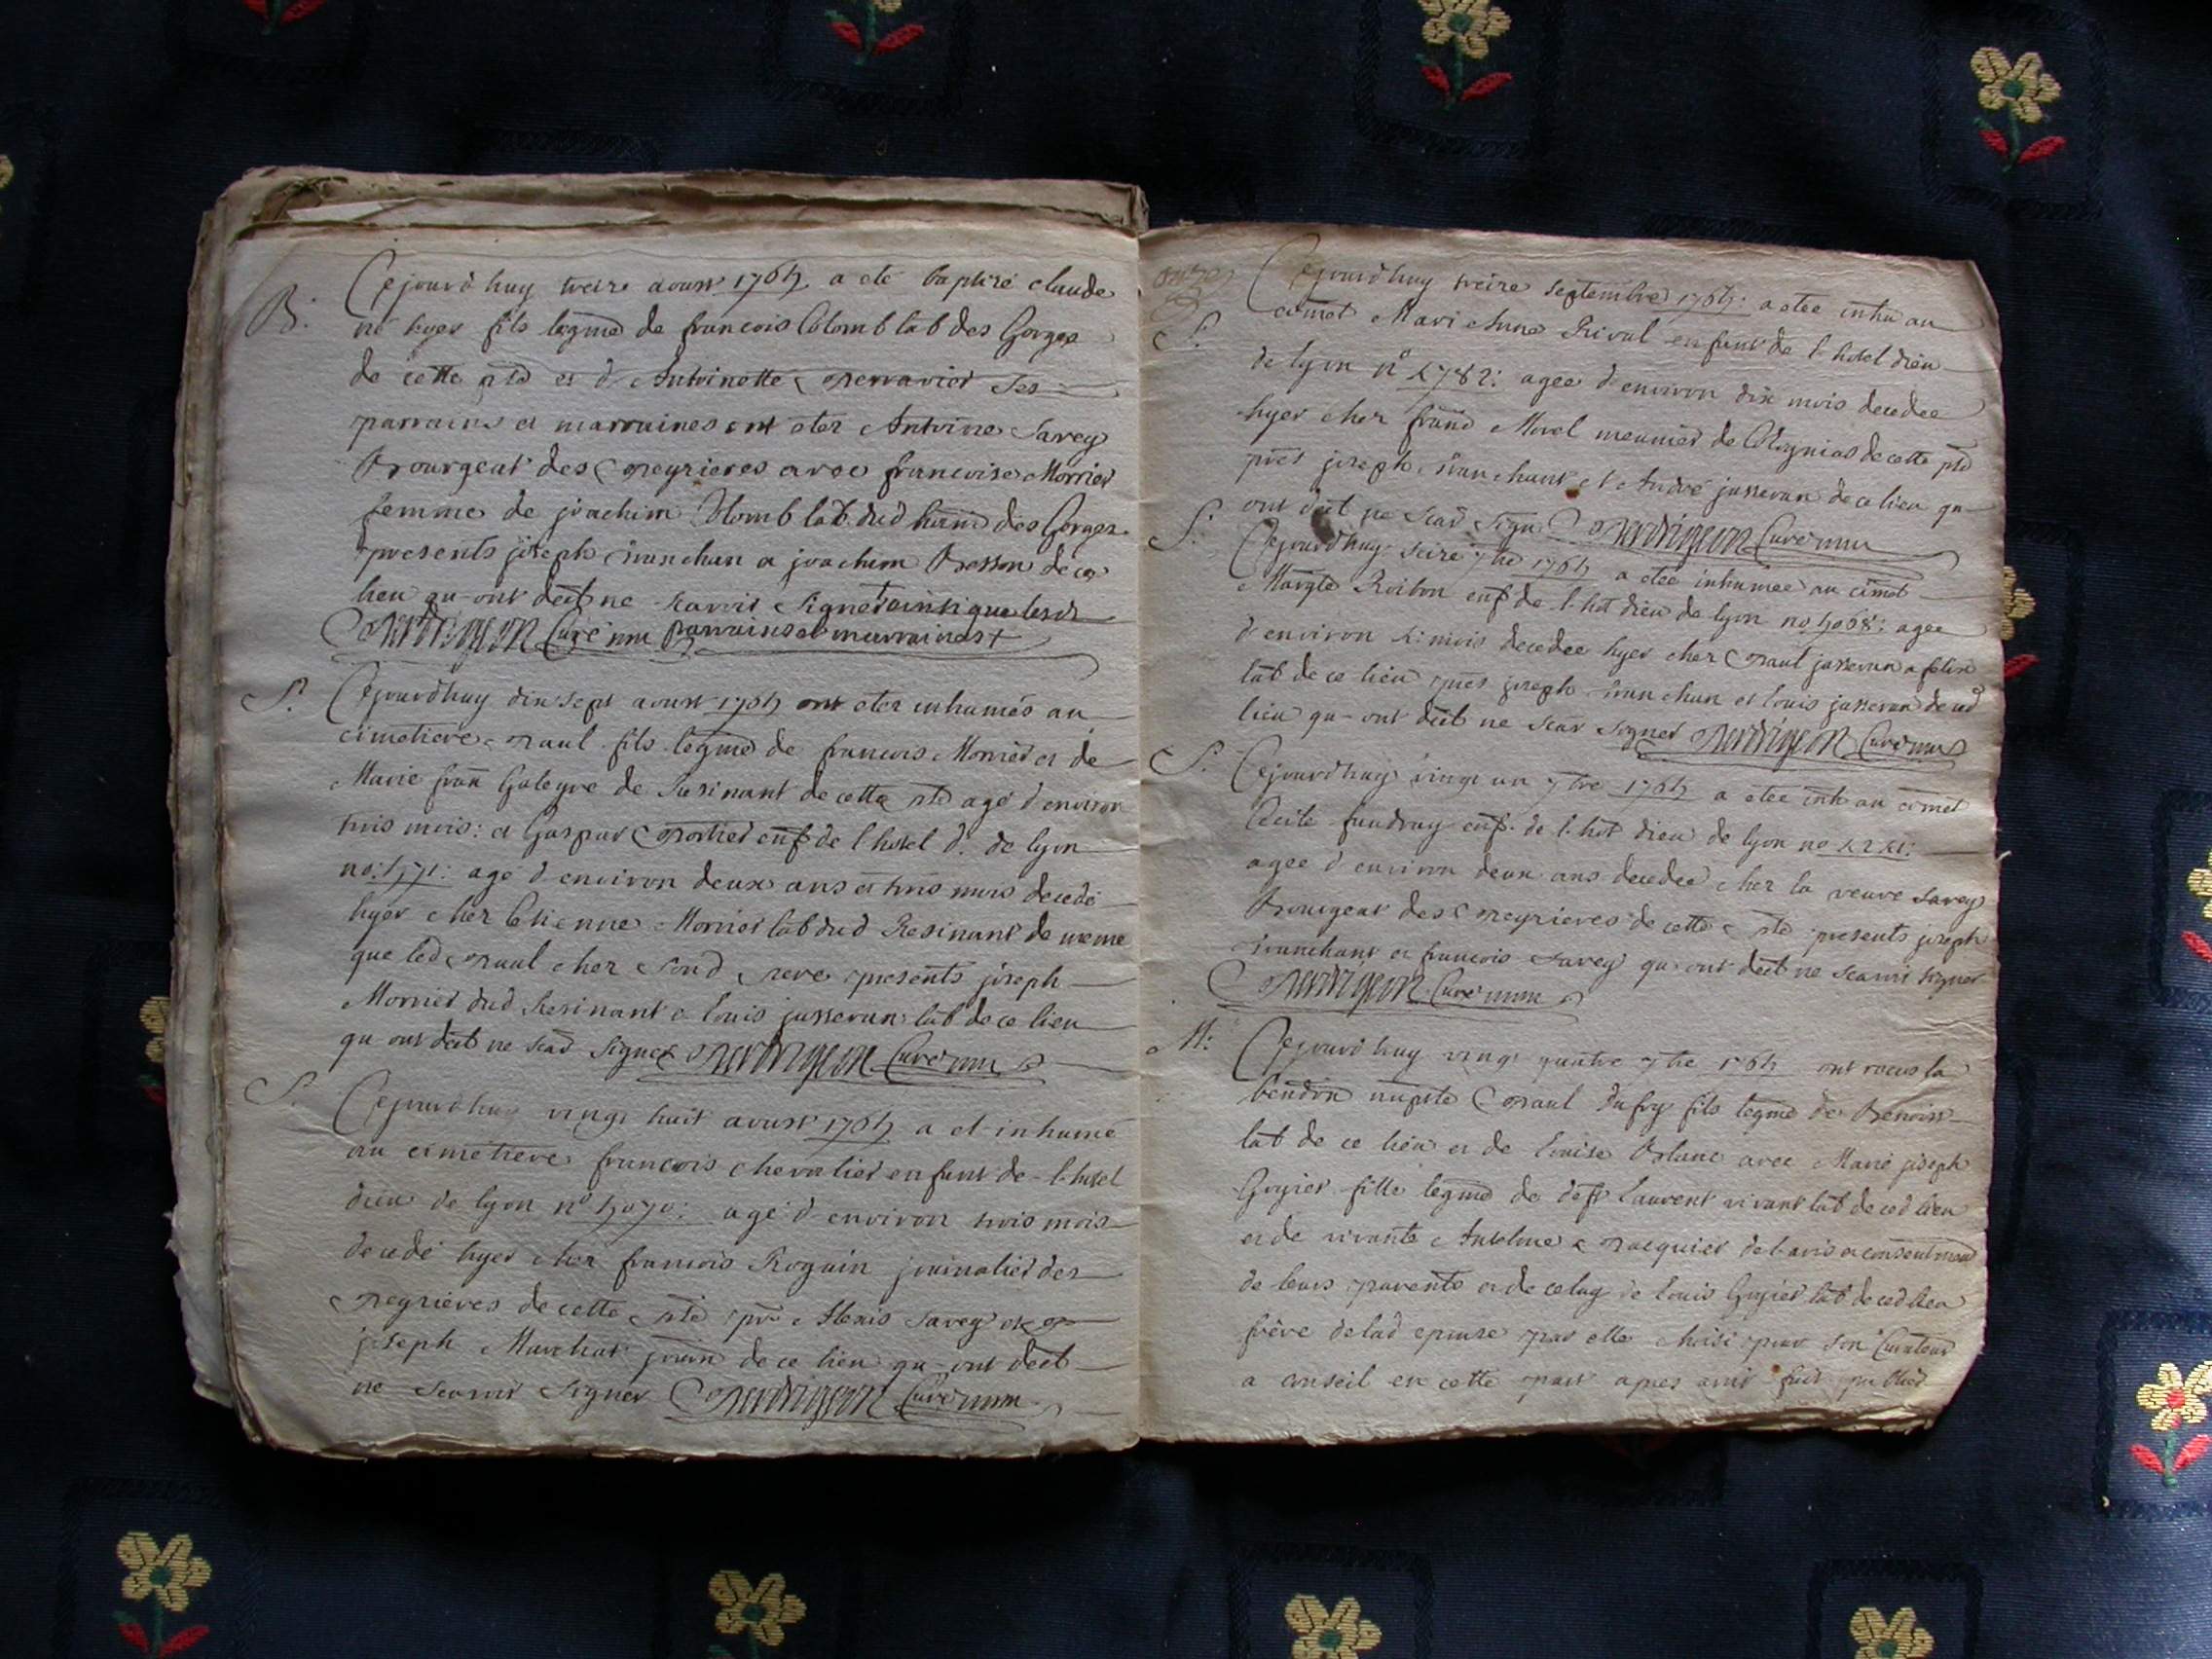 B. Cejourd'huy treize aoust 1764 a été baptizé claude
né hyer fils legme de francois Colomb lab des Gorges
de cette psse et d'Antoinette ses
parrains et marraines ont etez Antoine Savey
Bourgeat des Peyrieres avec francoise Morrier
femme de joachim Colomb lab dud ham des Gorges
presents joseph Franchan et joachim Besson de ce
lieu qu-ont deet ne scavoir signer + ainsi que lesd
Curé parrains et marraines +
S. Cejourd'huy dix sept aoust 1764 ont etez inhumés au
cimetiere Paul fils legme de francois Morrier et de
Marie fran Galeyre de Resinant de cette psse agé d'environ
trois mois: et Gaspar Portier enf de l'hotel d. de lyon
no: agé d'environ deux ans et trois mois decedé
hyer chez Etienne Morrier lab dud Resinant de meme
que led Paul chez Sond pere presents joseph
Morrier dud Resinant et louis jasseran lab de ce lieu
qu ont deet ne scav signer Curé
S. Cejourd'huy vingt huit aoust 1764 a et inhumé
au cimetiere francois chevalier enfant de l'hotel
dieu de lyon no 4070: agé d'environ trois mois
decedé hyer chez francois Roguin journalier des
Peyrieres de cette psse pnt Alexis Savey et
joseph Marchat journ de ce lieu qu-ont deet
ne scavoir signer Curé
Cejourd'huy treize septembre 1764: a etee inhu au
S. cimet Marie Anne Rival enfant de l'hotel dieu
de lyon no agee d'environ dix mois decedee
hyer chez Morel meunier de Coleynias de cette psse
pnts joseph Franchant et André jasseran de ce lieu qu
ont deet ne scav sign Curé
S. Cejourd'huy seize 7bre 1764 a etee inhumee au cimet
Margte Roibon enf de l'hot dieu de lyon no 4068: agee
d'environ mois decedee hyer chez Paul jasseran a felix
lab de ce lieu pnts joseph Franchan et louis jasseran de ced
lieu qu-ont deet ne scav signer Curé
S. Cejourd'huy vingt un 7bre 1764 a etee inh au cimet
Cecile faudray enf. de l'hot dieu de lyon no
agee d'environ deux ans decedee chez la veuve Savey
Bourgeat des Peyrieres de cette psse presents joseph
Franchant et francois Savey qu-ont deet ne scavoir signer
Curé
M: Cejourd'huy vingt quatre 7bre 1764 ont receus la
bendon nupte Paul Dufry fils legme de Benoist
lab de ce lieu et de louise Blanc avec Marie joseph
Guyier fille legme de deft Laurent vivant lab de ced lieu
et de vivante Anthlme Pasquier de l'avis et consentmen
de leurs parents et de celuy de louis Guyier lab de ced lieu
frère de lad epouse par elle choisi pour son Curateur
a conseil en cette part apres avoir publier